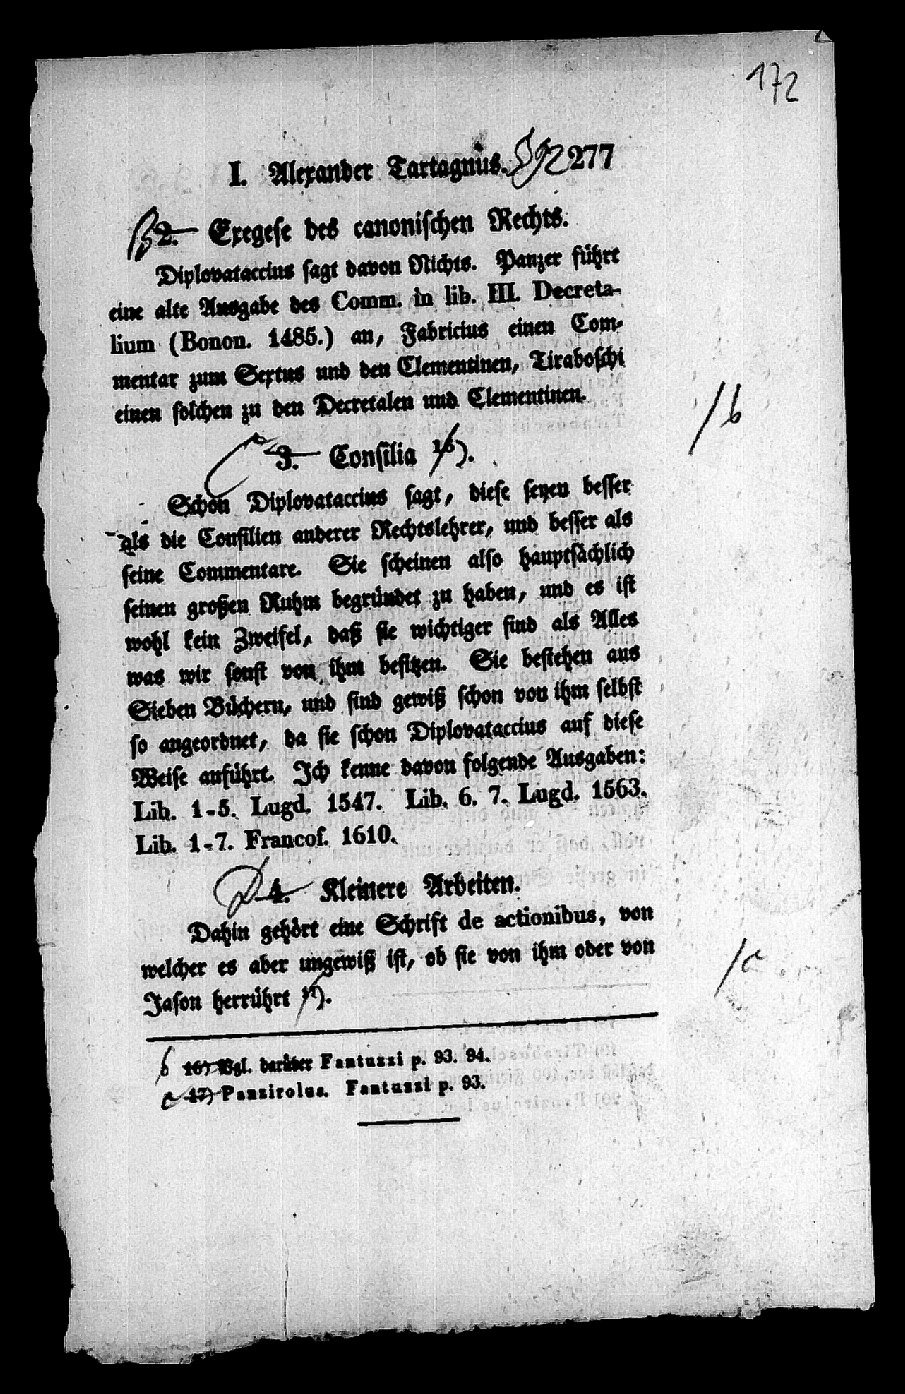 172
I. Alexander Tartagnus. 277
2. Exegese des canonischen Rechts.
Diplovataccius sagt davon Nichts. Panzer führt
eine alte Ausgabe des Comm. in lib. III. Decreta-
lium (Bonon. 1485.) an, Fabricius einen Com-
mentar zum Sextus und den Clementinen, Tiraboschi
einen solchen zu den Decretalen und Clementinen.
/b
3. Consilia 16).
Schon Diplovataccius sagt, diese seyen besser
als die Consilien anderer Rechtslehrer, und besser als
seine Commentare. Sie scheinen also hauptsächlich
seinen großen Ruhm begründet zu haben, und es ist
wohl kein Zweifel, daß sie wichtiger sind als Alles
was wir sonst von ihm besitzen. Sie bestehen aus
Sieben Büchern, und sind gewiß schon von ihm selbst
so angeordnet, da sie schon Diplovataccius auf diese
Weise anführt. Ich kenne davon folgende Ausgaben:
Lib. 1-5. Lugd. 1547. Lib. 6. 7. Lugd. 1563.
Lib. 1-7. Francof. 1610.
4. Kleinere Arbeiten.
Dahin gehört eine Schrift de actionibus, von
welcher es aber ungewiß ist, ob sie von ihm oder von
Jason herrührt 17).
/c
b 16) Vgl. darüber Fantuzzi p. 93. 94.
c 17) Panzirolus. Fantuzzi p. 93.